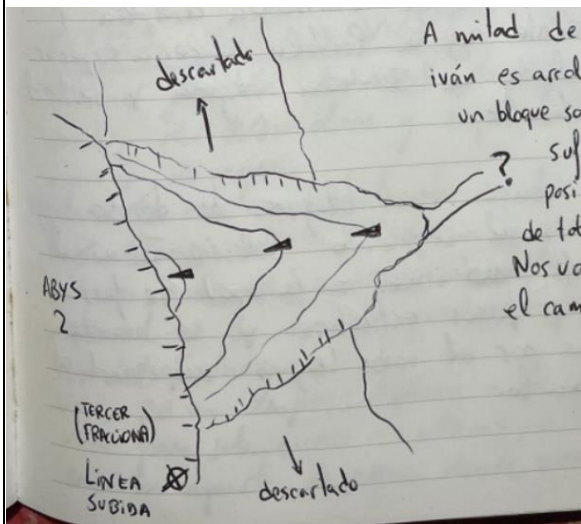 descartado
A mitad de
iván es arrol
un bloque so
suf
posi
de tot
Nos va
el cam
?
ABYS
2
(TERCER
FRACIONA)
LÍNEA
SUBIDA
descartado